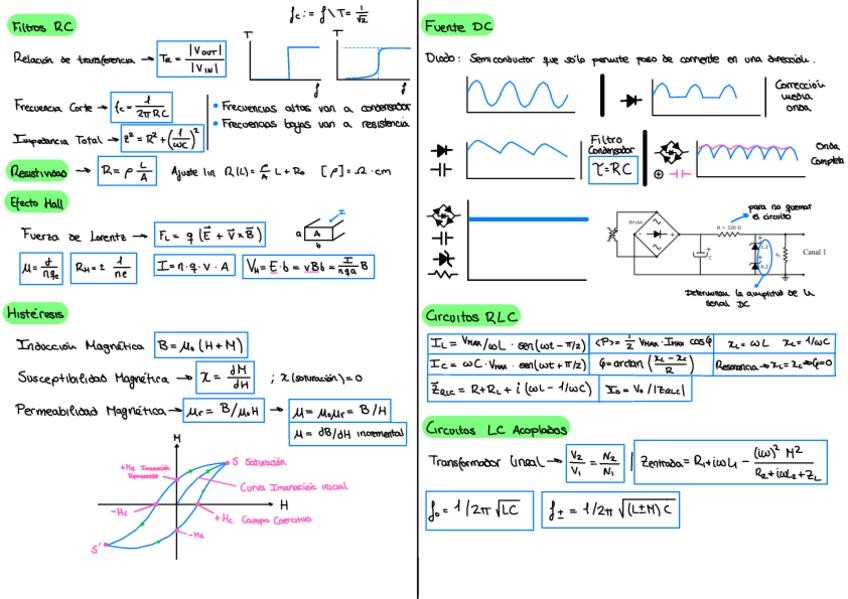 Filtros RC
fc := f \ T = 1/√2
Relación de transferencia → TR = |VOUT| / |VIN|
T
f
T
f
Frecuencia Corte → fc = 1/2πRC
• Frecuencias altas van a condensador
• Frecuencias bajas van a resistencia
Impedancia Total → z² = R² + (1/ωC)²
Resistividad → R = ρ L/A Ajuste lin R(L) = ρ/A L + R₀ [ρ] = Ω · cm
Efecto Hall
Fuerza de Lorentz → FL = q (E⃗ + V⃗ × B⃗)
a A b I
RH = ± 1/ne
I = n · q · v · A
VH = E · b = vBb = I/nqa B
Histéresis
Inducción Magnética B = μ₀ (H + M)
Susceptibilidad Magnética → χ = dM/dH ; χ (saturación) = 0
Permeabilidad Magnética → μr = B/μ₀H → μ = μ₀μr = B/H
μ = dB/dH incremental
M
+MR Imanación Remanente
S Saturación
Curva Imanación inicial
-Hc
H
+Hc Campo Coercitivo
-MR
S'
Fuente DC
Diodo: Semiconductor que sólo permite paso de corriente en una dirección.
Corrección media onda
Filtro Condensador
τ = RC
Onda Completa
para no quemar el circuito
R = 330 Ω
C
Canal 1
Determinan la amplitud de la señal DC
Circuitos RLC
IL = VMAX/ωL · sen(ωt - π/2) <P> = 1/2 VMAX · IMAX cos φ xL = ωL xC = 1/ωC
IC = ωC · VMAX · sen(ωt + π/2) φ = arctan (xL - xC / R) Resonancia → xL = xC → φ = 0
Z⃗RLC = R + RL + i (ωL - 1/ωC) I₀ = V₀ / |ZRLC|
Circuitos LC Acoplados
Transformador Lineal → V2/V1 = N2/N1 | Zentrada = R1 + iωL1 - (iω)² M² / R2 + iωL2 + ZL
f₀ = 1/2π √LC
f± = 1/2π √(L±M)C